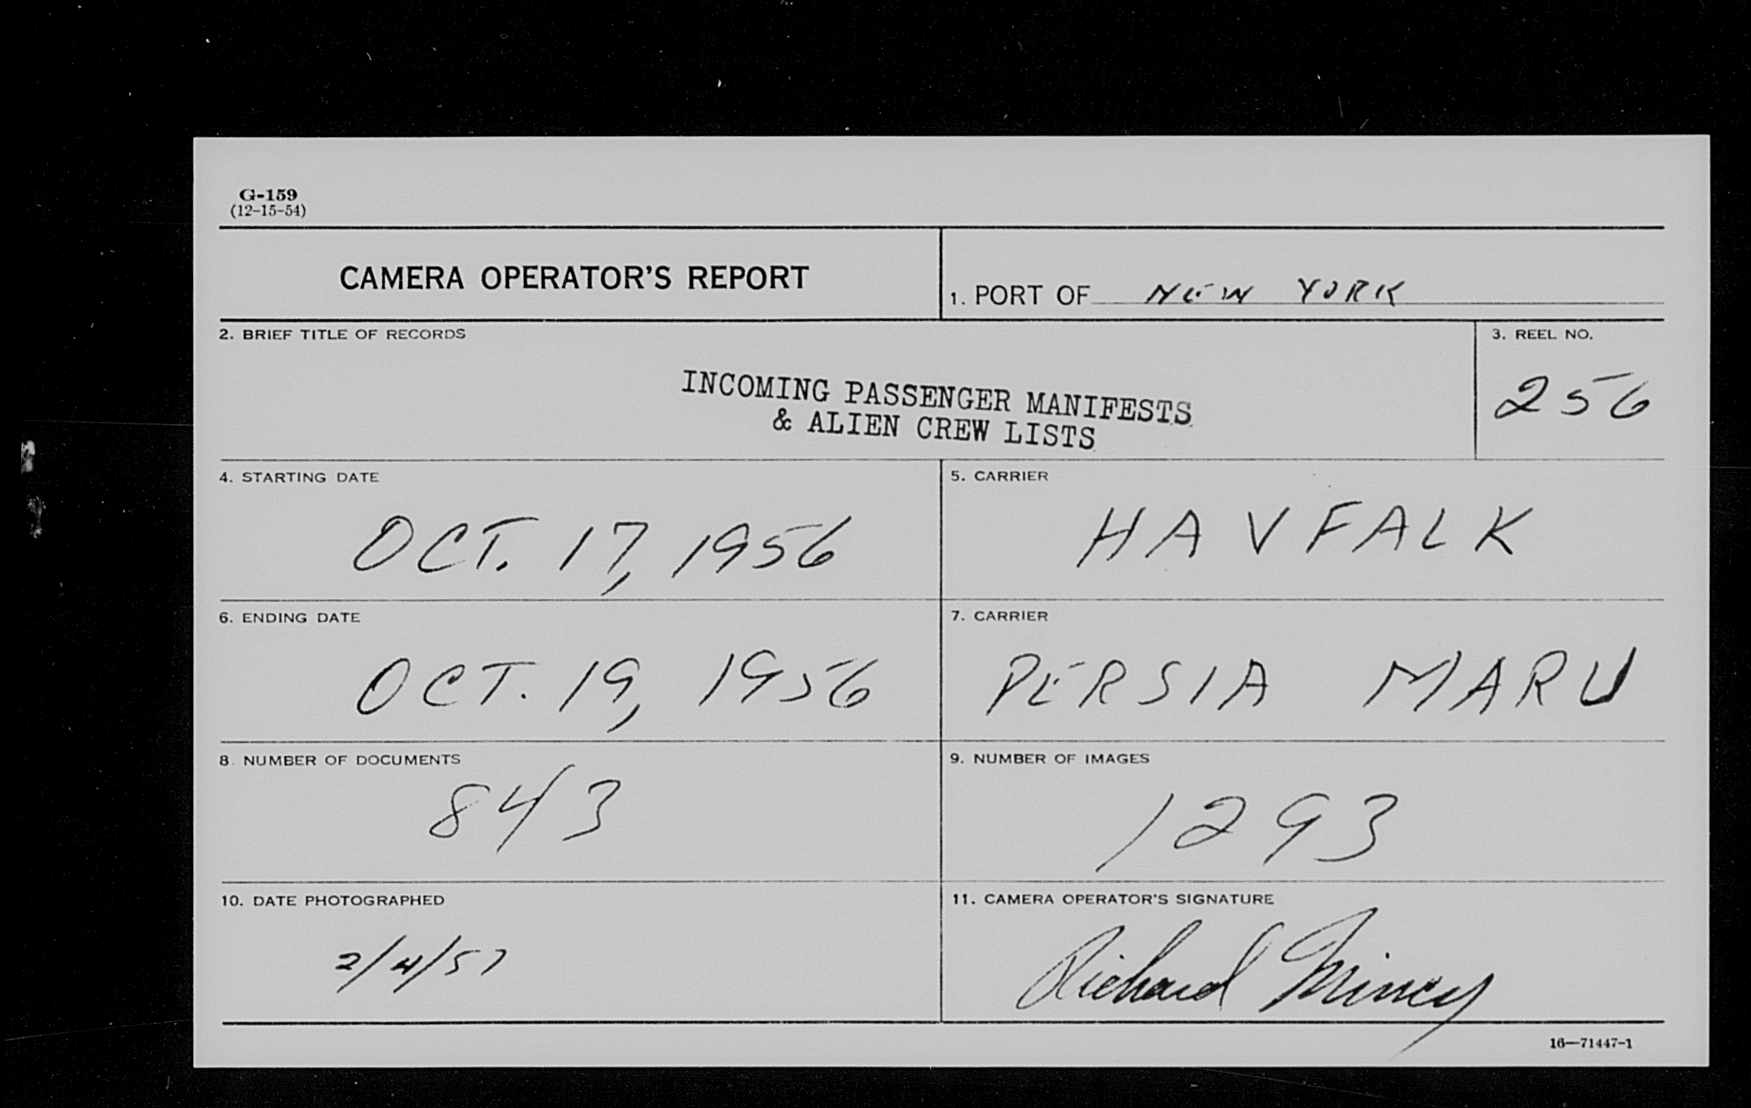 G-159
(12-15-54)
CAMERA OPERATOR'S REPORT
1. PORT OF NEW YORK
2. BRIEF TITLE OF RECORDS
INCOMING PASSENGER MANIFESTS
& ALIEN CREW LISTS
3. REEL NO.
256
4. STARTING DATE
OCT. 17, 1956
5. CARRIER
HAVFALK
6. ENDING DATE
OCT. 19, 1956
7. CARRIER
PERSIA MARU
8. NUMBER OF DOCUMENTS
843
9. NUMBER OF IMAGES
1293
10. DATE PHOTOGRAPHED
2/4/57
11. CAMERA OPERATOR'S SIGNATURE
Richard Mincy
16—71447-1